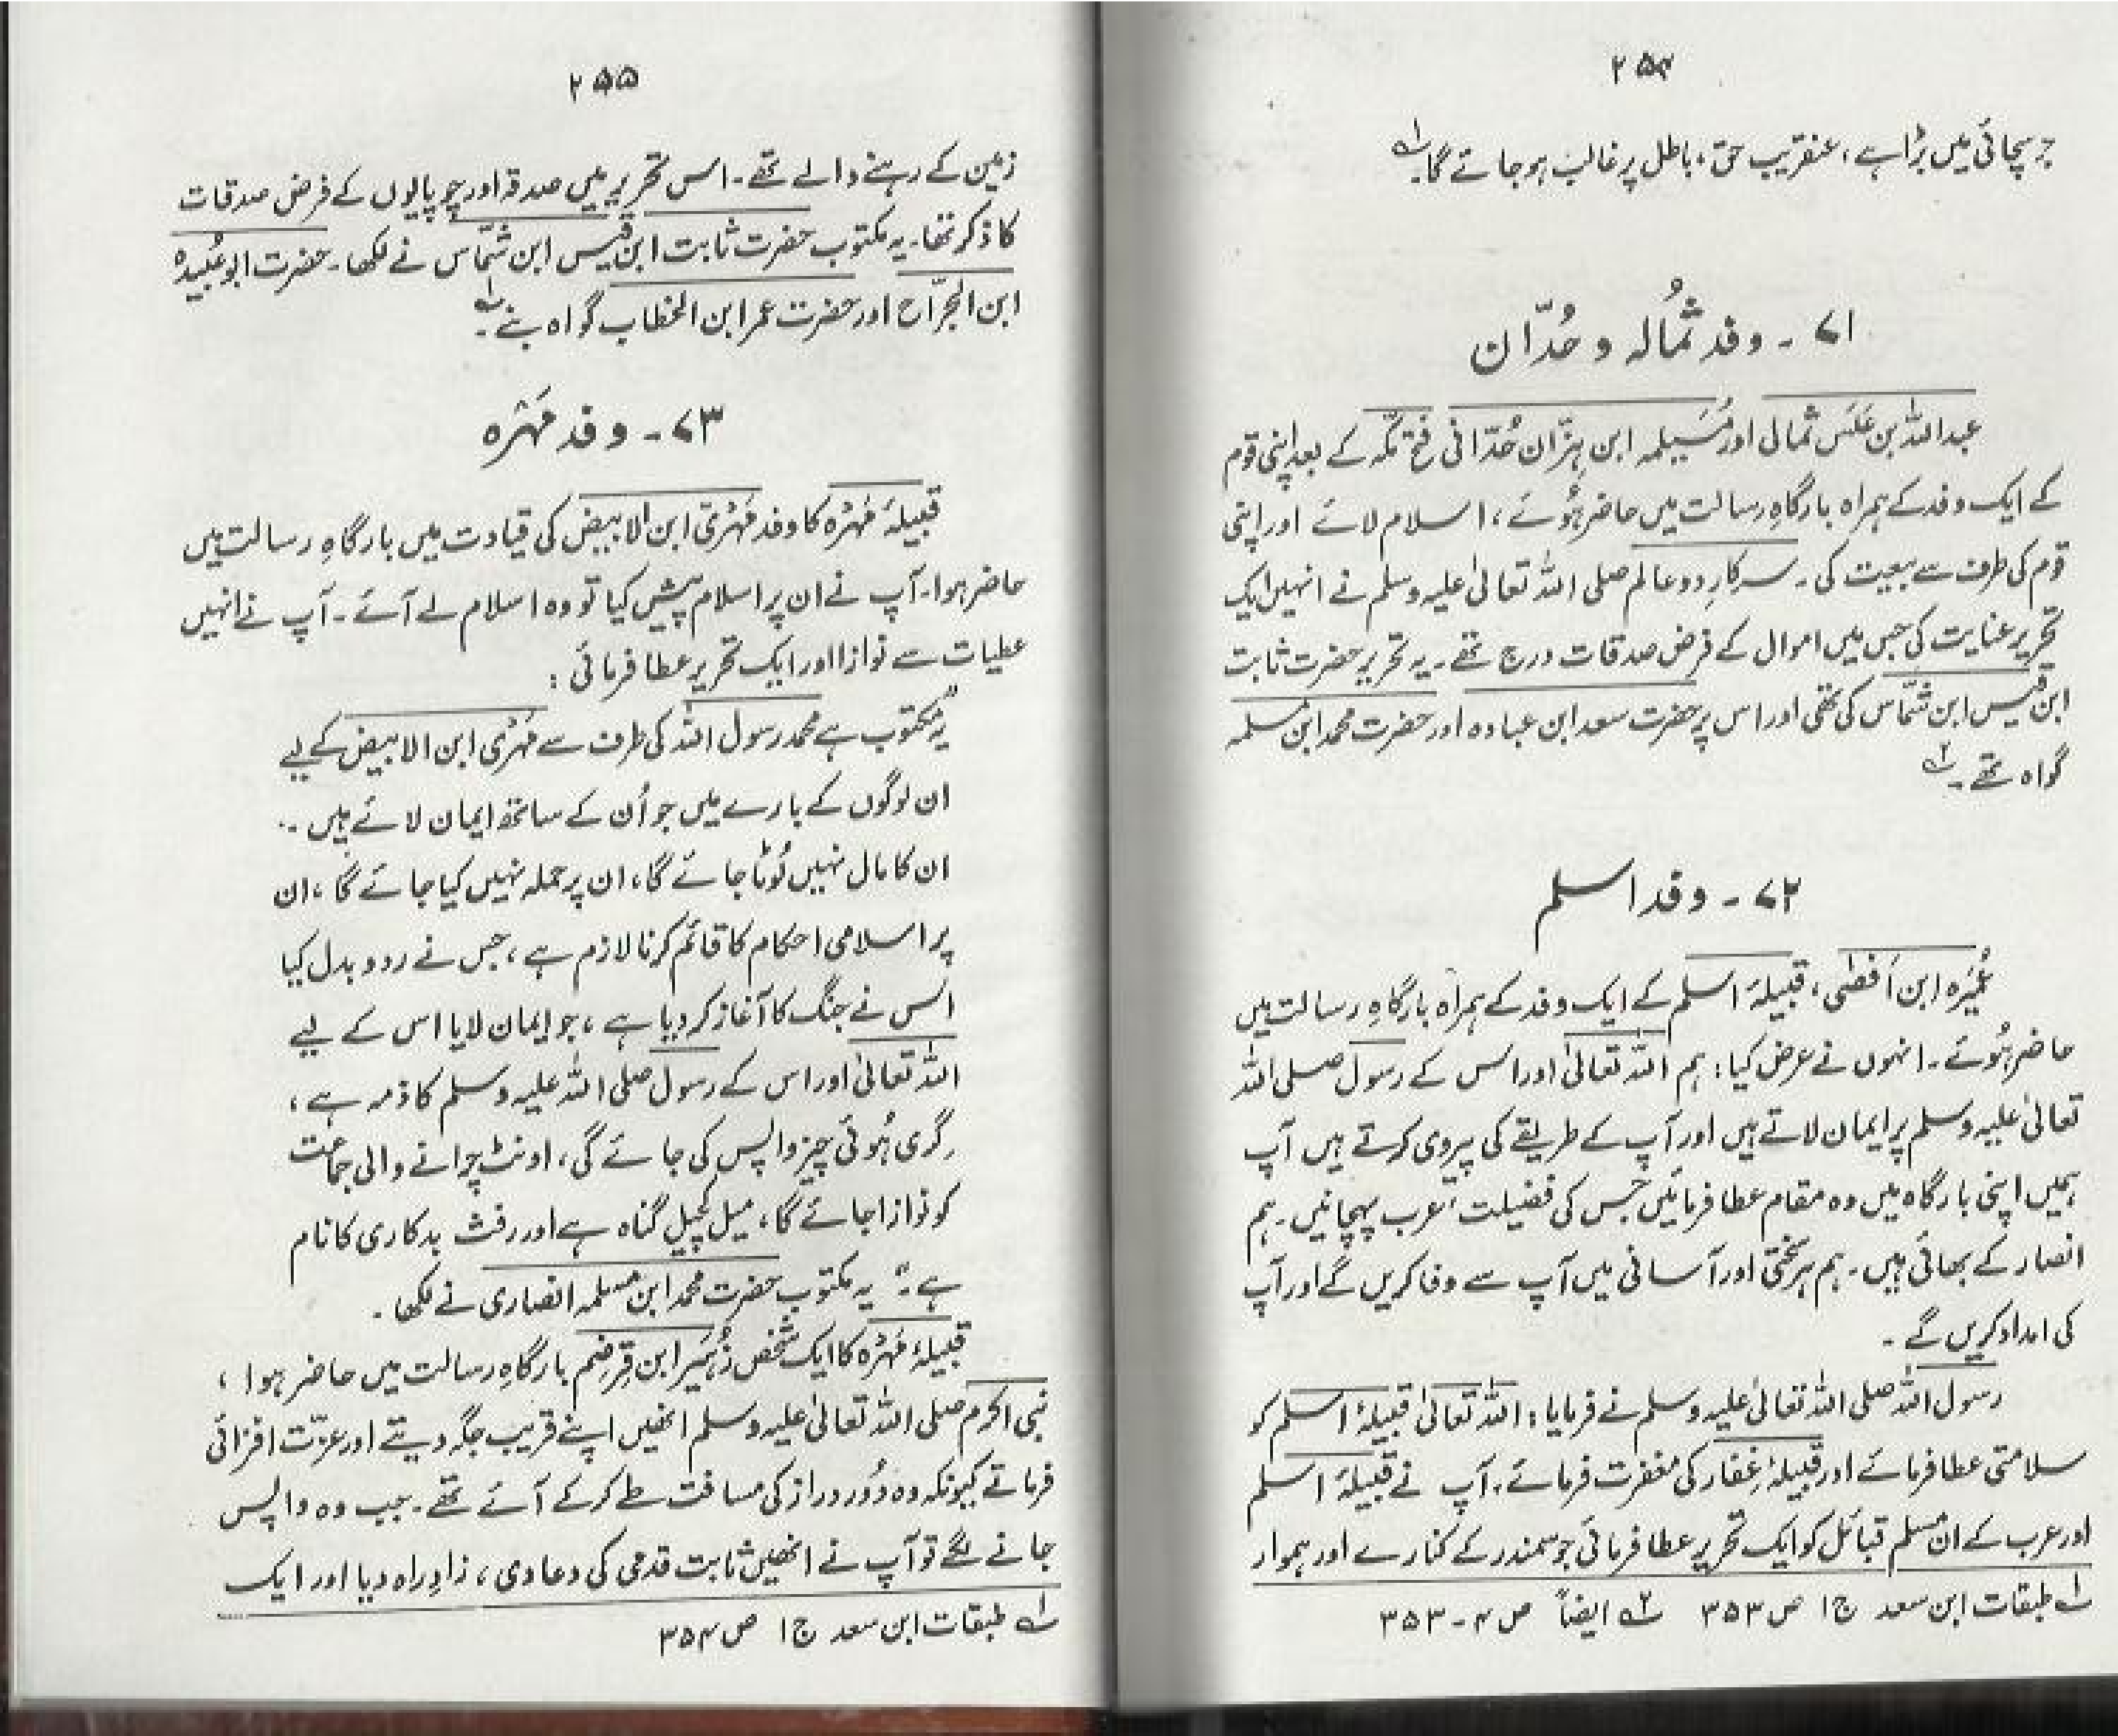 ۲۵۴
جو سچائی میں بڑا ہے، عنقریب حق، باطل پر غالب ہو جائے گا۔ لہ
۷۱۔ وفد ثُمالہ و حُدّان
عبد اللہ بن عَلَس ثمالی اور مُسَیلمہ ابن ہِزّان حُدّانی فتح مکّہ کے بعد اپنی قوم
کے ایک وفد کے ہمراہ بارگاہِ رسالت میں حاضر ہُوئے، اسلام لائے اور اپنی
قوم کی طرف سے بیعت کی۔ سرکارِ دو عالم صلی اللہ تعالیٰ علیہ وسلم نے انہیں ایک
تحریر عنایت کی جس میں اموال کے فرض صدقات درج تھے۔ یہ تحریر حضرت ثابت
ابن قیس ابن شمّاس کی تھی اور اس پر حضرت سعد ابن عبادہ اور حضرت محمد ابن مسلمہ
گواہ تھے۔ ۲ہ
۷۲۔ وفد اسلم
عُمَیرَہ ابن اَفصٰی، قبیلۂ اسلم کے ایک وفد کے ہمراہ بارگاہِ رسالت میں
حاضر ہُوئے۔ انہوں نے عرض کیا: ہم اللہ تعالیٰ اور اس کے رسول صلی اللہ
تعالیٰ علیہ وسلم پر ایمان لاتے ہیں اور آپ کے طریقے کی پیروی کرتے ہیں آپ
ہمیں اپنی بارگاہ میں وہ مقام عطا فرمائیں جس کی فضیلت، عرب پہچانیں۔ ہم
انصار کے بھائی ہیں۔ ہم ہر سختی اور آسانی میں آپ سے وفا کریں گے اور آپ
کی امداد کریں گے۔
رسول اللہ صلی اللہ تعالیٰ علیہ وسلم نے فرمایا: اللہ تعالیٰ قبیلۂ اسلم کو
سلامتی عطا فرمائے اور قبیلۂ غِفار کی مغفرت فرمائے، آپ نے قبیلۂ اسلم
اور عرب کے ان مسلم قبائل کو ایک تحریر عطا فرمائی جو سمندر کے کنارے اور ہموار
لہ طبقات ابن سعد ج ۱ ص ۳۵۳ ۲ہ ایضاً ص ۴-۳۵۳
۲۵۵
زمین کے رہنے والے تھے۔ اس تحریر میں صدقہ اور چوپایوں کے فرض صدقات
کا ذکر تھا۔ یہ مکتوب حضرت ثابت ابن قیس ابن شمّاس نے لکھا۔ حضرت ابو عُبیدہ
ابن الجرّاح اور حضرت عمر ابن الخطاب گواہ بنے۔ لہ
۷۳۔ وفد مَہْرہ
قبیلۂ مَہْرَہ کا وفد مَہْرَی ابن الابیض کی قیادت میں بارگاہِ رسالت میں
حاضر ہوا۔ آپ نے ان پر اسلام پیش کیا تو وہ اسلام لے آئے۔ آپ نے انہیں
عطیات سے نوازا اور ایک تحریر عطا فرمائی:
”یہ مکتوب ہے محمد رسول اللہ کی طرف سے مَہْرَی ابن الابیض کے لیے
ان لوگوں کے بارے میں جو اُن کے ساتھ ایمان لائے ہیں۔
ان کا مال نہیں لُوٹا جائے گا، ان پر حملہ نہیں کیا جائے گا، ان
پر اسلامی احکام کا قائم کرنا لازم ہے، جس نے رد و بدل کیا
اس نے جنگ کا آغاز کر دیا ہے، جو ایمان لایا اس کے لیے
اللہ تعالیٰ اور اس کے رسول صلی اللہ علیہ وسلم کا ذمہ ہے،
گِری ہُوئی چیز واپس کی جائے گی، اونٹ چرانے والی جماعت
کو نوازا جائے گا، میل کچیل گناہ ہے اور رفث بدکاری کا نام
ہے“۔ یہ مکتوب حضرت محمد ابن مسلمہ انصاری نے لکھا۔
قبیلۂ مَہْرَہ کا ایک شخص زُہَیر ابن قِرضِم بارگاہِ رسالت میں حاضر ہوا،
نبی اکرم صلی اللہ تعالیٰ علیہ وسلم انھیں اپنے قریب جگہ دیتے اور عزّت افزائی
فرماتے کیونکہ وہ دُور دراز کی مسافت طے کر کے آئے تھے۔ جب وہ واپس
جانے لگے تو آپ نے انھیں ثابت قدمی کی دعا دی، زادِ راہ دیا اور ایک
لہ طبقات ابن سعد ج ۱ ص ۳۵۴